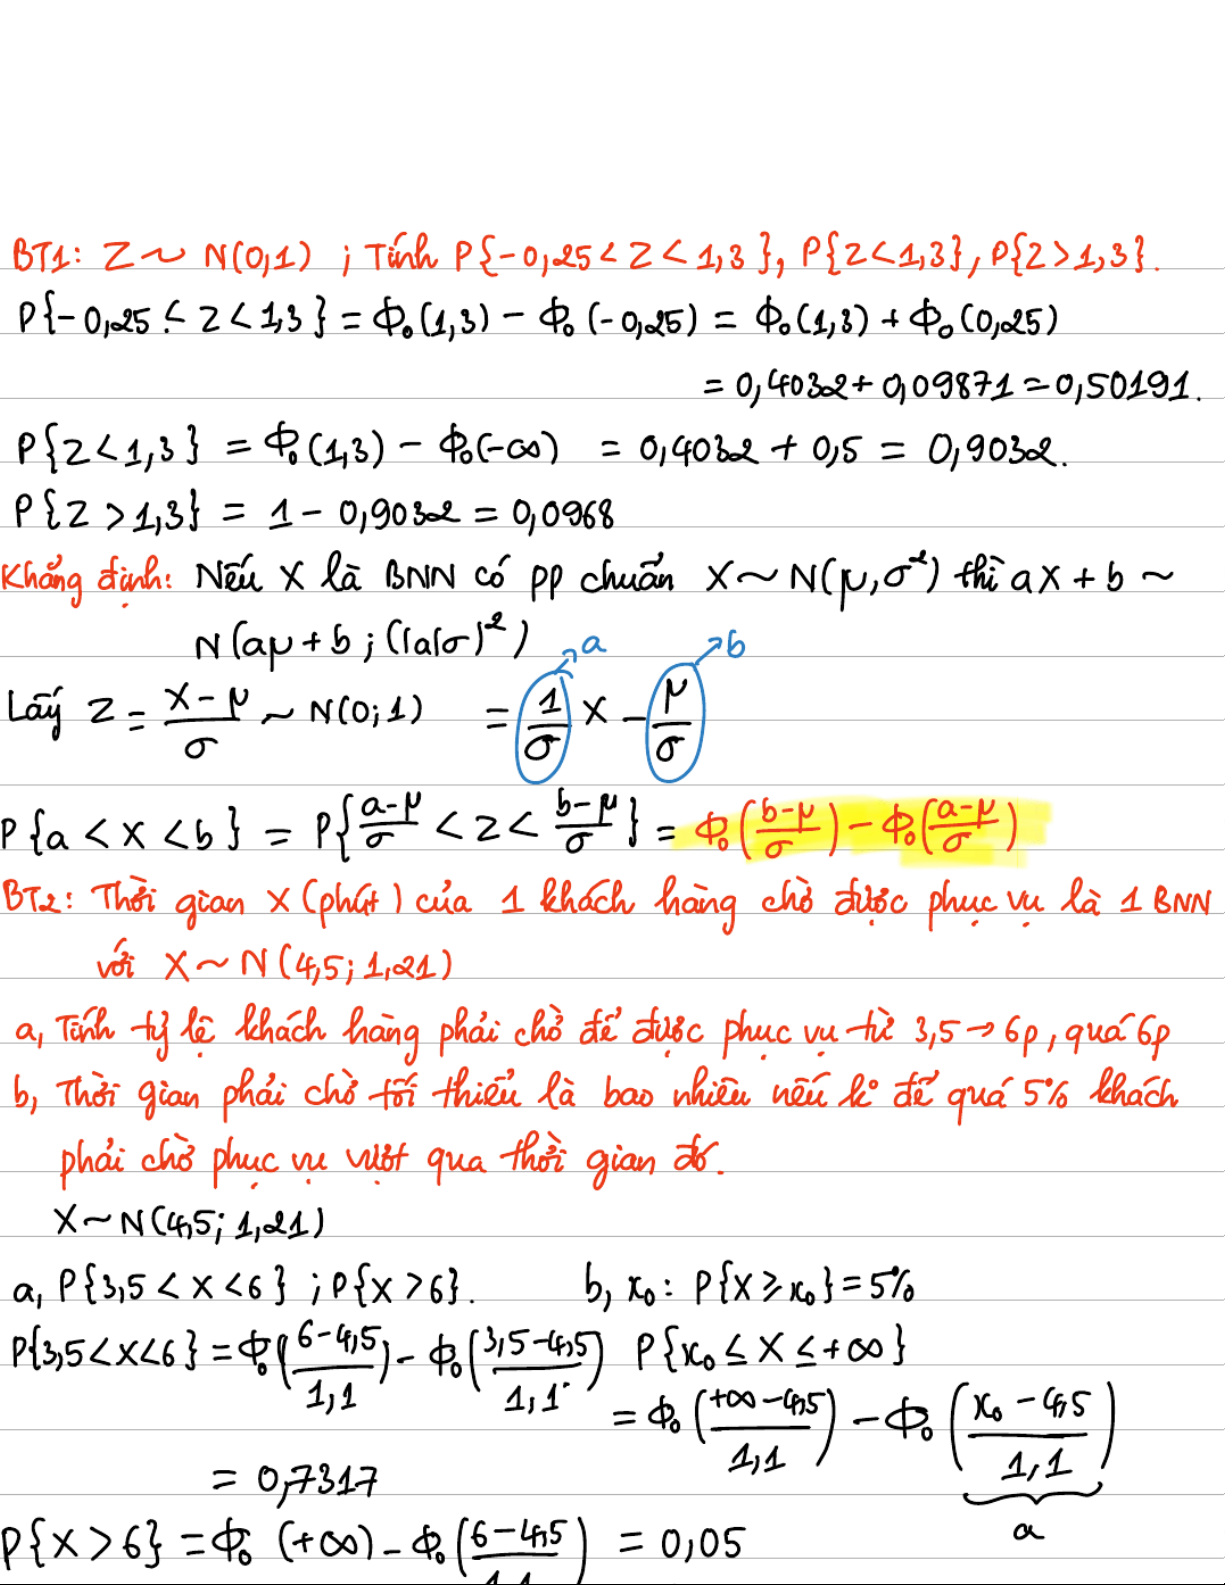 BT1: Z ~ N(0,1) ; Tính P{-0,25 < Z < 1,3}, P{Z<1,3}, P{Z>1,3}.
P{-0,25 < Z < 1,3} = Φ₀(1,3) - Φ₀(-0,25) = Φ₀(1,3) + Φ₀(0,25)
= 0,4032 + 0,09871 = 0,50191.
P{Z<1,3} = Φ₀(1,3) - Φ₀(-∞) = 0,4032 + 0,5 = 0,9032.
P{Z>1,3} = 1 - 0,9032 = 0,0968
Khẳng định: Nếu X là BNN có pp chuẩn X ~ N(μ,σ²) thì aX + b ~
N(aμ + b ; (|a|σ)²)
a b
Lấy Z = (X-μ)/σ ~ N(0;1) = 1/σ X - μ/σ
P{a < X < b} = P{(a-μ)/σ < Z < (b-μ)/σ} = Φ₀((b-μ)/σ) - Φ₀((a-μ)/σ)
BT2: Thời gian X (phút) của 1 khách hàng chờ được phục vụ là 1 BNN
với X ~ N(4,5; 1,21)
a, Tính tỷ lệ khách hàng phải chờ để được phục vụ từ 3,5 → 6p, quá 6p
b, Thời gian phải chờ tối thiểu là bao nhiêu nếu k° để quá 5% khách
phải chờ phục vụ vượt qua thời gian đó.
X ~ N(4,5; 1,21)
a, P{3,5 < X < 6} ; P{X > 6}. b, x₀ : P{X ≥ x₀} = 5%
P{3,5<X<6} = Φ₀((6-4,5)/1,1) - Φ₀((3,5-4,5)/1,1) P{x₀ ≤ X ≤ +∞}
= Φ₀((+∞-4,5)/1,1) - Φ₀((x₀-4,5)/1,1)
= 0,7317
a
P{X > 6} = Φ₀(+∞) - Φ₀((6-4,5)/1,1) = 0,05